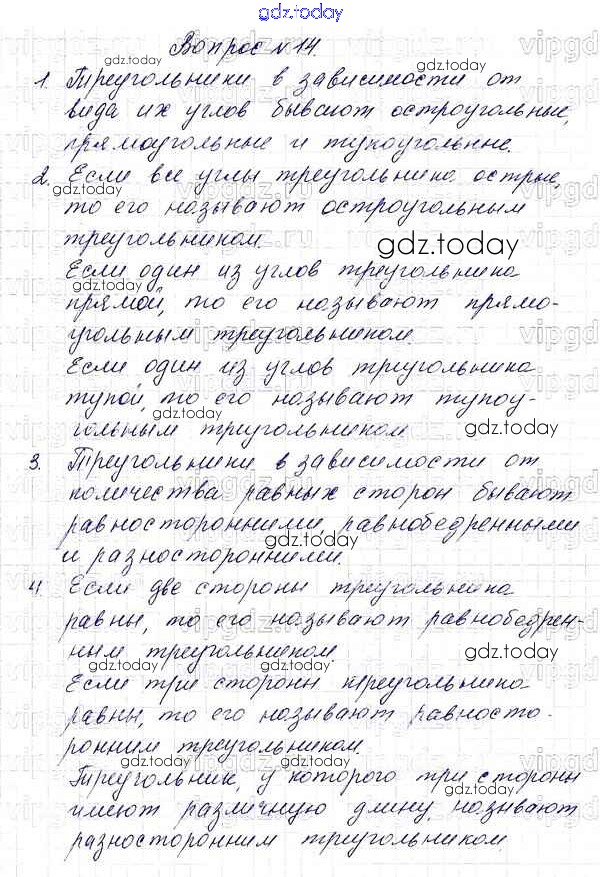 gdz.today
Вопрос № 14.
1. Треугольники в зависимости от
вида их углов бывают остроугольные,
прямоугольные и тупоугольные.
2. Если все углы треугольника острые,
то его называют остроугольным
треугольником.
Если один из углов треугольника
прямой, то его называют прямо-
угольным треугольником.
Если один из углов треугольника
тупой, то его называют тупоу-
гольным треугольником
3. Треугольники в зависимости от
количества равных сторон бывают
равносторонними, равнобедренными
и разносторонними.
4. Если две стороны треугольника
равны, то его называют равнобедрен-
ным треугольником
Если три стороны треугольника
равны, то его называют равносто-
ронним треугольником.
Треугольник, у которого три стороны
имеют различную длину, называют
разносторонним треугольником.